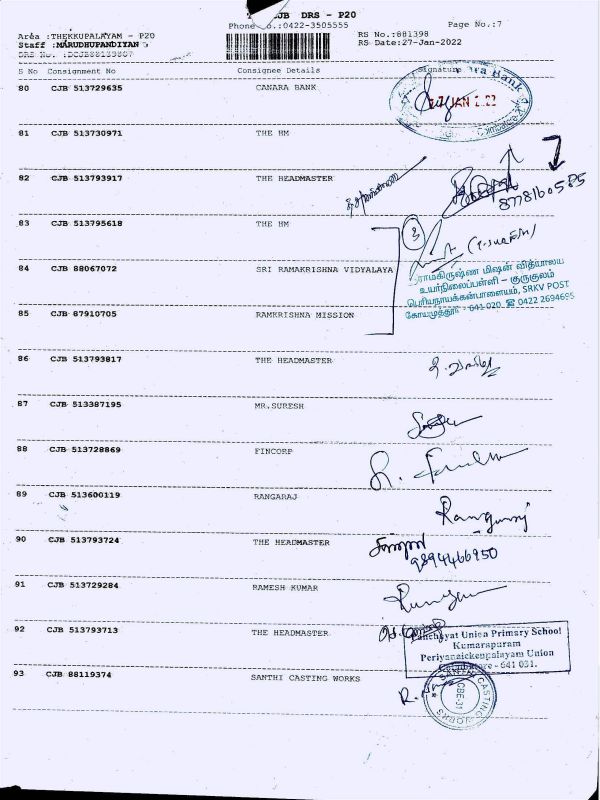 CJB DRS - P20
Area :THEKKUPALAYAM - P20
Phone No.:0422-3505555
Page No.:7
Staff :MARUDHUPANDIYAN
RS No.:881398
DRS No. :DCJB88139807
RS Date:27-Jan-2022
S No Consignment No Consignee Details Signature
80 CJB 513729635 CANARA BANK
27 JAN 2022
81 CJB 513730971 THE HM
82 CJB 513793917 THE HEADMASTER
8778160585
83 CJB 513795618 THE HM
3
84 CJB 88067072 SRI RAMAKRISHNA VIDYALAYA
ராமகிருஷ்ண மிஷன் வித்யாலய
உயர்நிலைப்பள்ளி - குருகுலம்
பெரியநாயக்கன்பாளையம், SRKV POST
கோயமுத்தூர் - 641 020. ☎ 0422 2694695
85 CJB 87910705 RAMKRISHNA MISSION
86 CJB 513793817 THE HEADMASTER
87 CJB 513387195 MR.SURESH
88 CJB 513728869 FINCORP
89 CJB 513600119 RANGARAJ
Rangaraj
90 CJB 513793724 THE HEADMASTER
9894466950
91 CJB 513729284 RAMESH KUMAR
92 CJB 513793713 THE HEADMASTER
Panchayat Union Primary School
Kumarapuram
Periyanaickenpalayam Union
Coimbatore - 641 031.
93 CJB 88119374 SANTHI CASTING WORKS
SANTHI CASTING WORKS
CBE-31